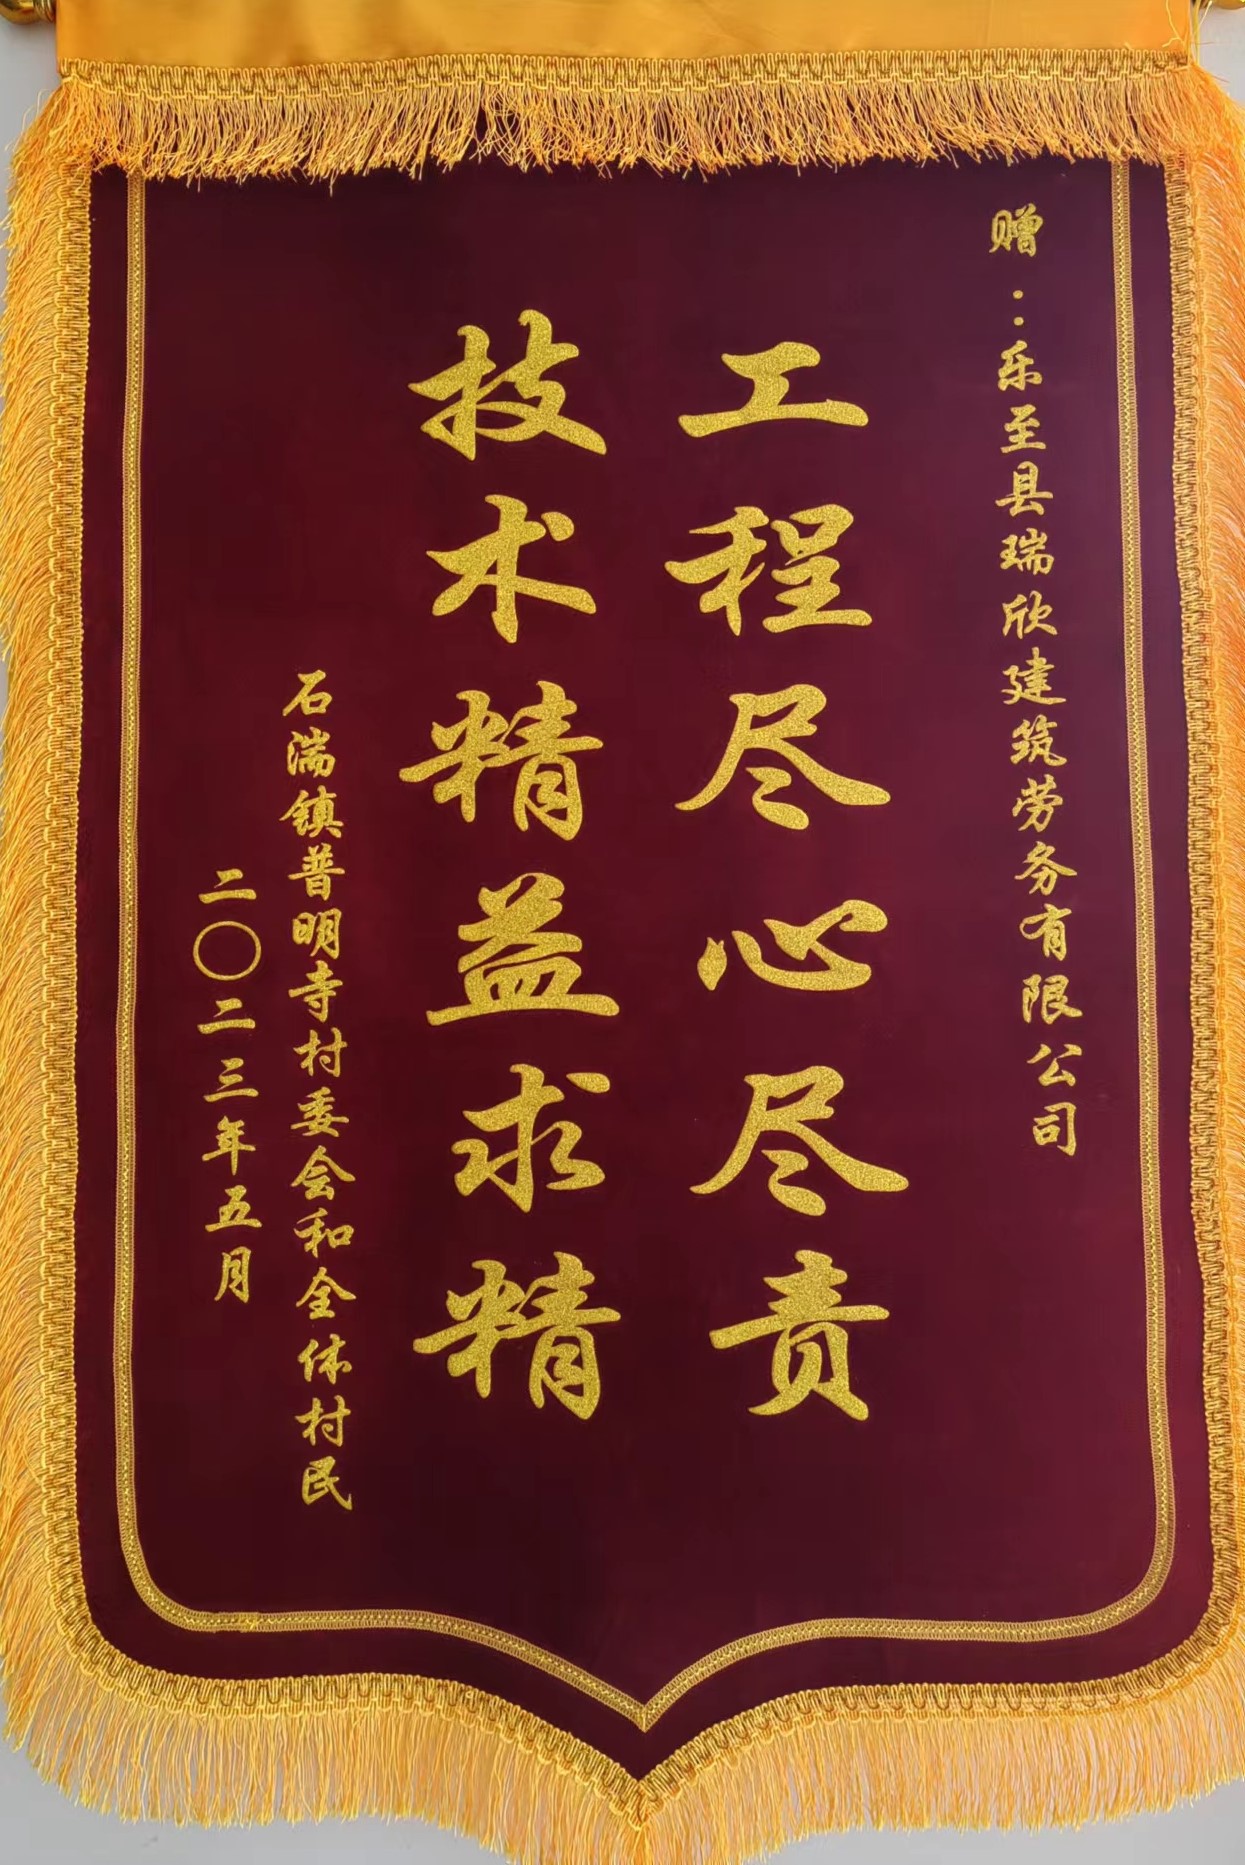 赠：乐至县瑞欣建筑劳务有限公司
工程尽心尽责
技术精益求精
石湍镇普明寺村委会和全体村民
二〇二三年五月